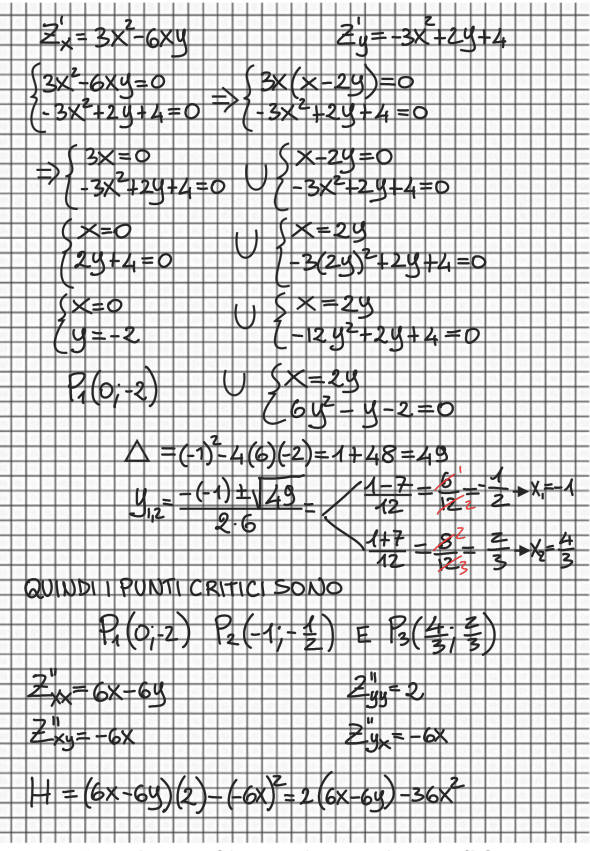 Z'x = 3x²-6xy    Z'y = -3x²+2y+4
{3x²-6xy=0    => {3x(x-2y)=0
{-3x²+2y+4=0    {-3x²+2y+4=0
=> {3x=0    ∪ {x-2y=0
{-3x²+2y+4=0    {-3x²+2y+4=0
{x=0    ∪ {x=2y
{2y+4=0    {-3(2y)²+2y+4=0
{x=0    ∪ {x=2y
{y=-2    {-12y²+2y+4=0
P₁(0;-2)    ∪ {x=2y
{6y²-y-2=0
△ =(-1)²-4(6)(-2)=1+48=49
y₁,₂ = (-(-1)±√49)/(2·6) = < (1-7)/12 = 6/12 = -1/2 → x₁=-1
(1+7)/12 = 8/12 = 2/3 → x₂=4/3
QUINDI I PUNTI CRITICI SONO
P₁(0;-2)  P₂(-1;-1/2)  E  P₃(4/3;2/3)
Z''xx = 6x-6y    Z''yy = 2
Z''xy = -6x    Z''yx = -6x
H = (6x-6y)(2)-(-6x)² = 2(6x-6y)-36x²